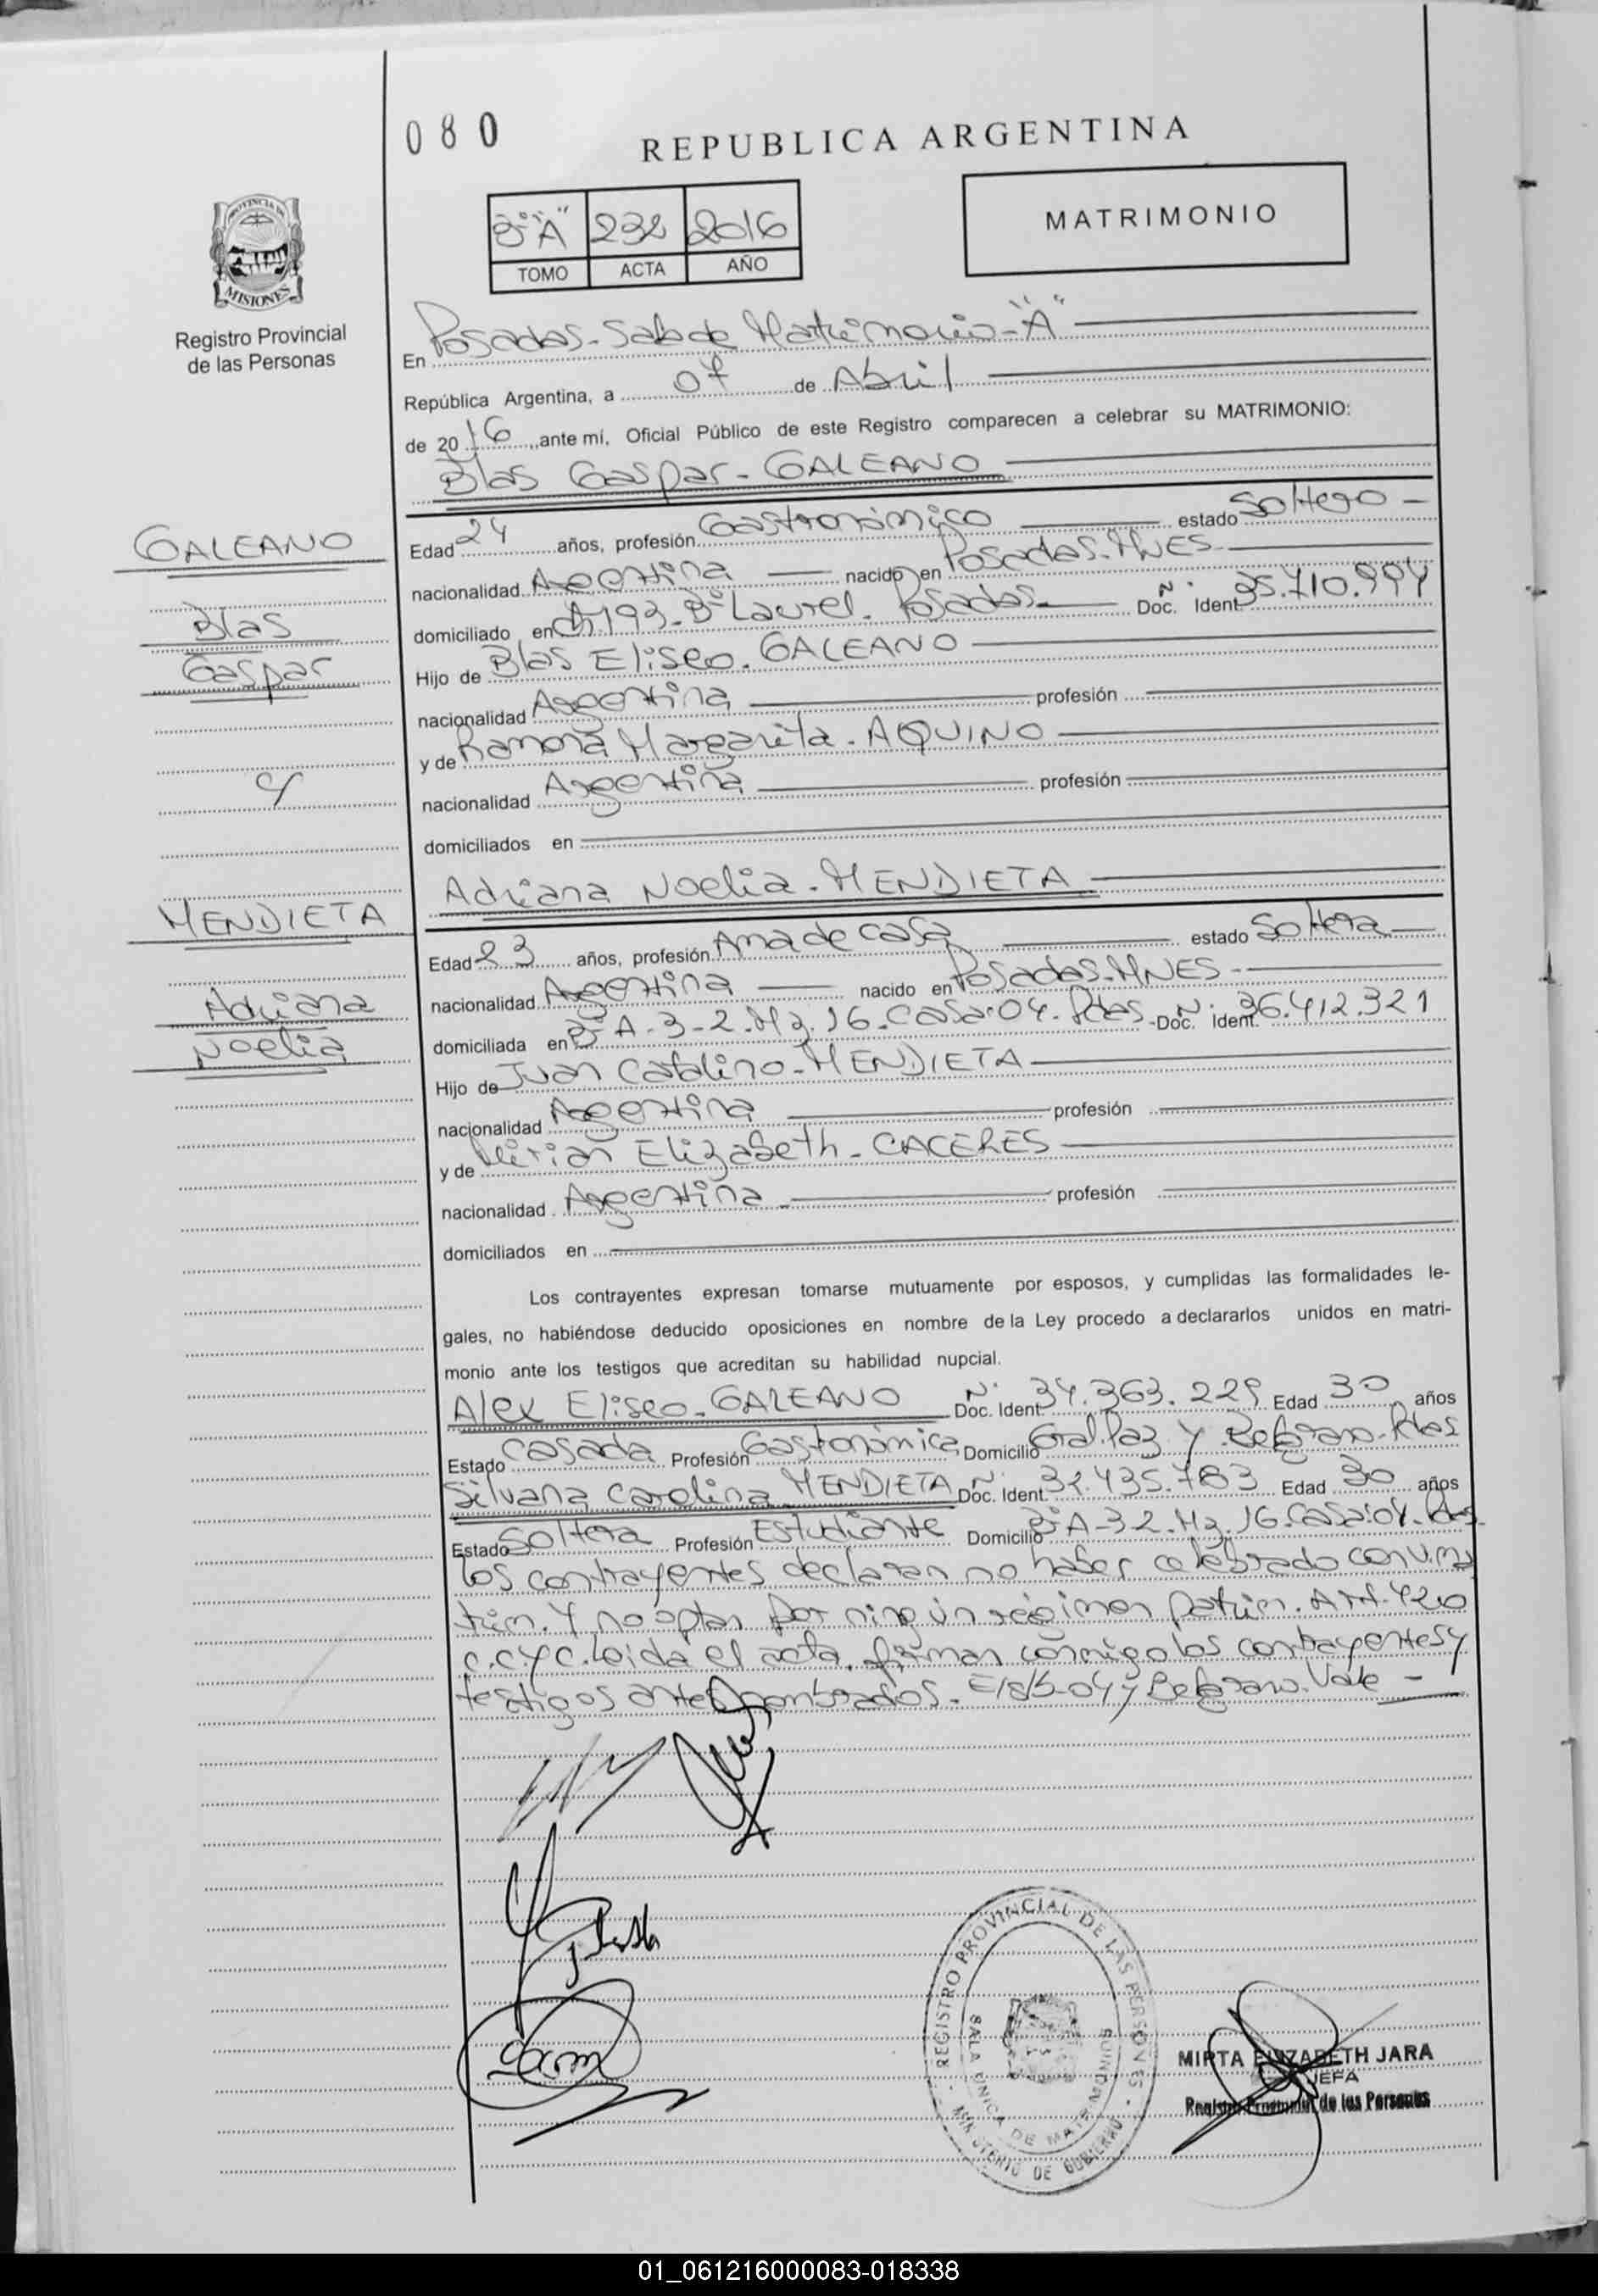 080
REPUBLICA ARGENTINA
PROVINCIA DE MISIONES
Registro Provincial
de las Personas
3º"A" 232 2016
TOMO ACTA AÑO
MATRIMONIO
En Posadas - Sala de Matrimonio - "A"
República Argentina, a 07 de Abril
de 2016, ante mí, Oficial Público de este Registro comparecen a celebrar su MATRIMONIO:
Blas Gaspar - GALEANO
GALEANO
Blas
Gaspar
c/
MENDIETA
Adriana
Noelia
Edad 24 años, profesión Gastronómico estado Soltero -
nacionalidad Argentina nacido en Posadas. MNES -
domiciliado en Ch 193 - Bº Laurel. Posadas Doc. Ident. Nº 35.710.994
Hijo de Blas Eliseo. GALEANO
nacionalidad Argentina profesión
y de Ramona Margarita - AQUINO
nacionalidad Argentina profesión
domiciliados en
Adriana Noelia - MENDIETA
Edad 23 años, profesión Ama de casa estado Soltera
nacionalidad Argentina nacido en Posadas. MNES -
domiciliada en Bº A-3-2. Mz. 16. Casa: 04. Pdas. Doc. Ident. Nº 36.412.321
Hijo de Juan Catalino - MENDIETA
nacionalidad Argentina profesión
y de Mirian Elizabeth - CACERES
nacionalidad Argentina - profesión
domiciliados en
Los contrayentes expresan tomarse mutuamente por esposos, y cumplidas las formalidades le-
gales, no habiéndose deducido oposiciones en nombre de la Ley procedo a declararlos unidos en matri-
monio ante los testigos que acreditan su habilidad nupcial.
Alex Eliseo - GALEANO Doc. Ident. Nº 34.363.229 Edad 30 años
Estado Casada Profesión Gastronómica Domicilio Gral. Paz y Belgrano. Pdas
Silvana Carolina MENDIETA Doc. Ident. Nº 32.435.783 Edad 30 años
Estado Soltera Profesión Estudiante Domicilio Bº A-32. Mz. 16. Casa: 04. Pdas.
Los contrayentes declaran no haber celebrado conv. ma
trim. Y no optan por ningún régimen patrim. Art. 420
C.C.Y C. Leida el acta, firman conmigo los contrayentes y
testigos antes nombrados. E/s/b - 04 y Belgrano. Vale -
REGISTRO PROVINCIAL DE LAS PERSONAS
SALA UNICA DE MATRIMONIOS
MINISTERIO DE GOBIERNO
MIRTA ELIZABETH JARA
JEFA
Registro Provincial de las Personas
01_061216000083-018338